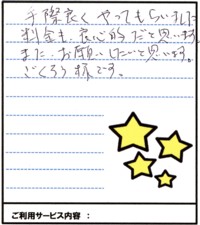 手際良くやってもらいました
料金も、良心的だと思います。
また、お願いしたいと思います。
ごくろう様です。
ご利用サービス内容：